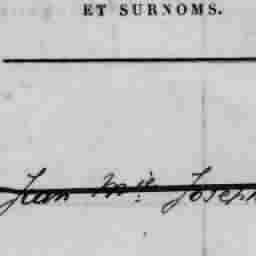 ET SURNOMS.
Jean Mie Joseph